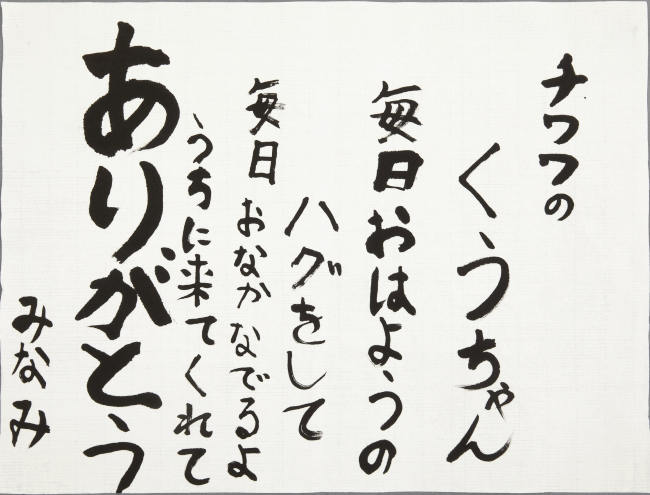 チワワの
くうちゃん
毎日おはようの
ハグをして
毎日おなかなでるよ
うちに来てくれて
ありがとう
みなみ